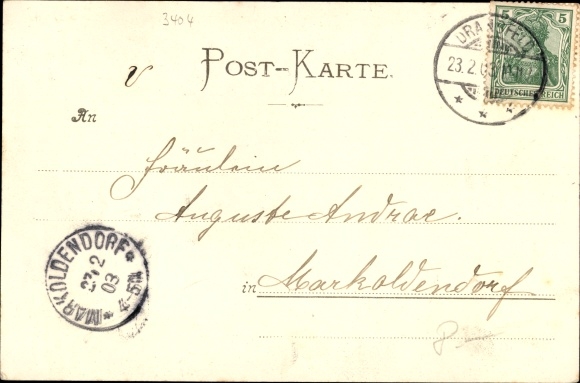 3404
POST-KARTE.
5 5
DEUTSCHES REICH
23.2.03
An
Fräulein
Auguste Andrae.
in Markoldendorf
MARKOLDENDORF
23 2 03
4-5N